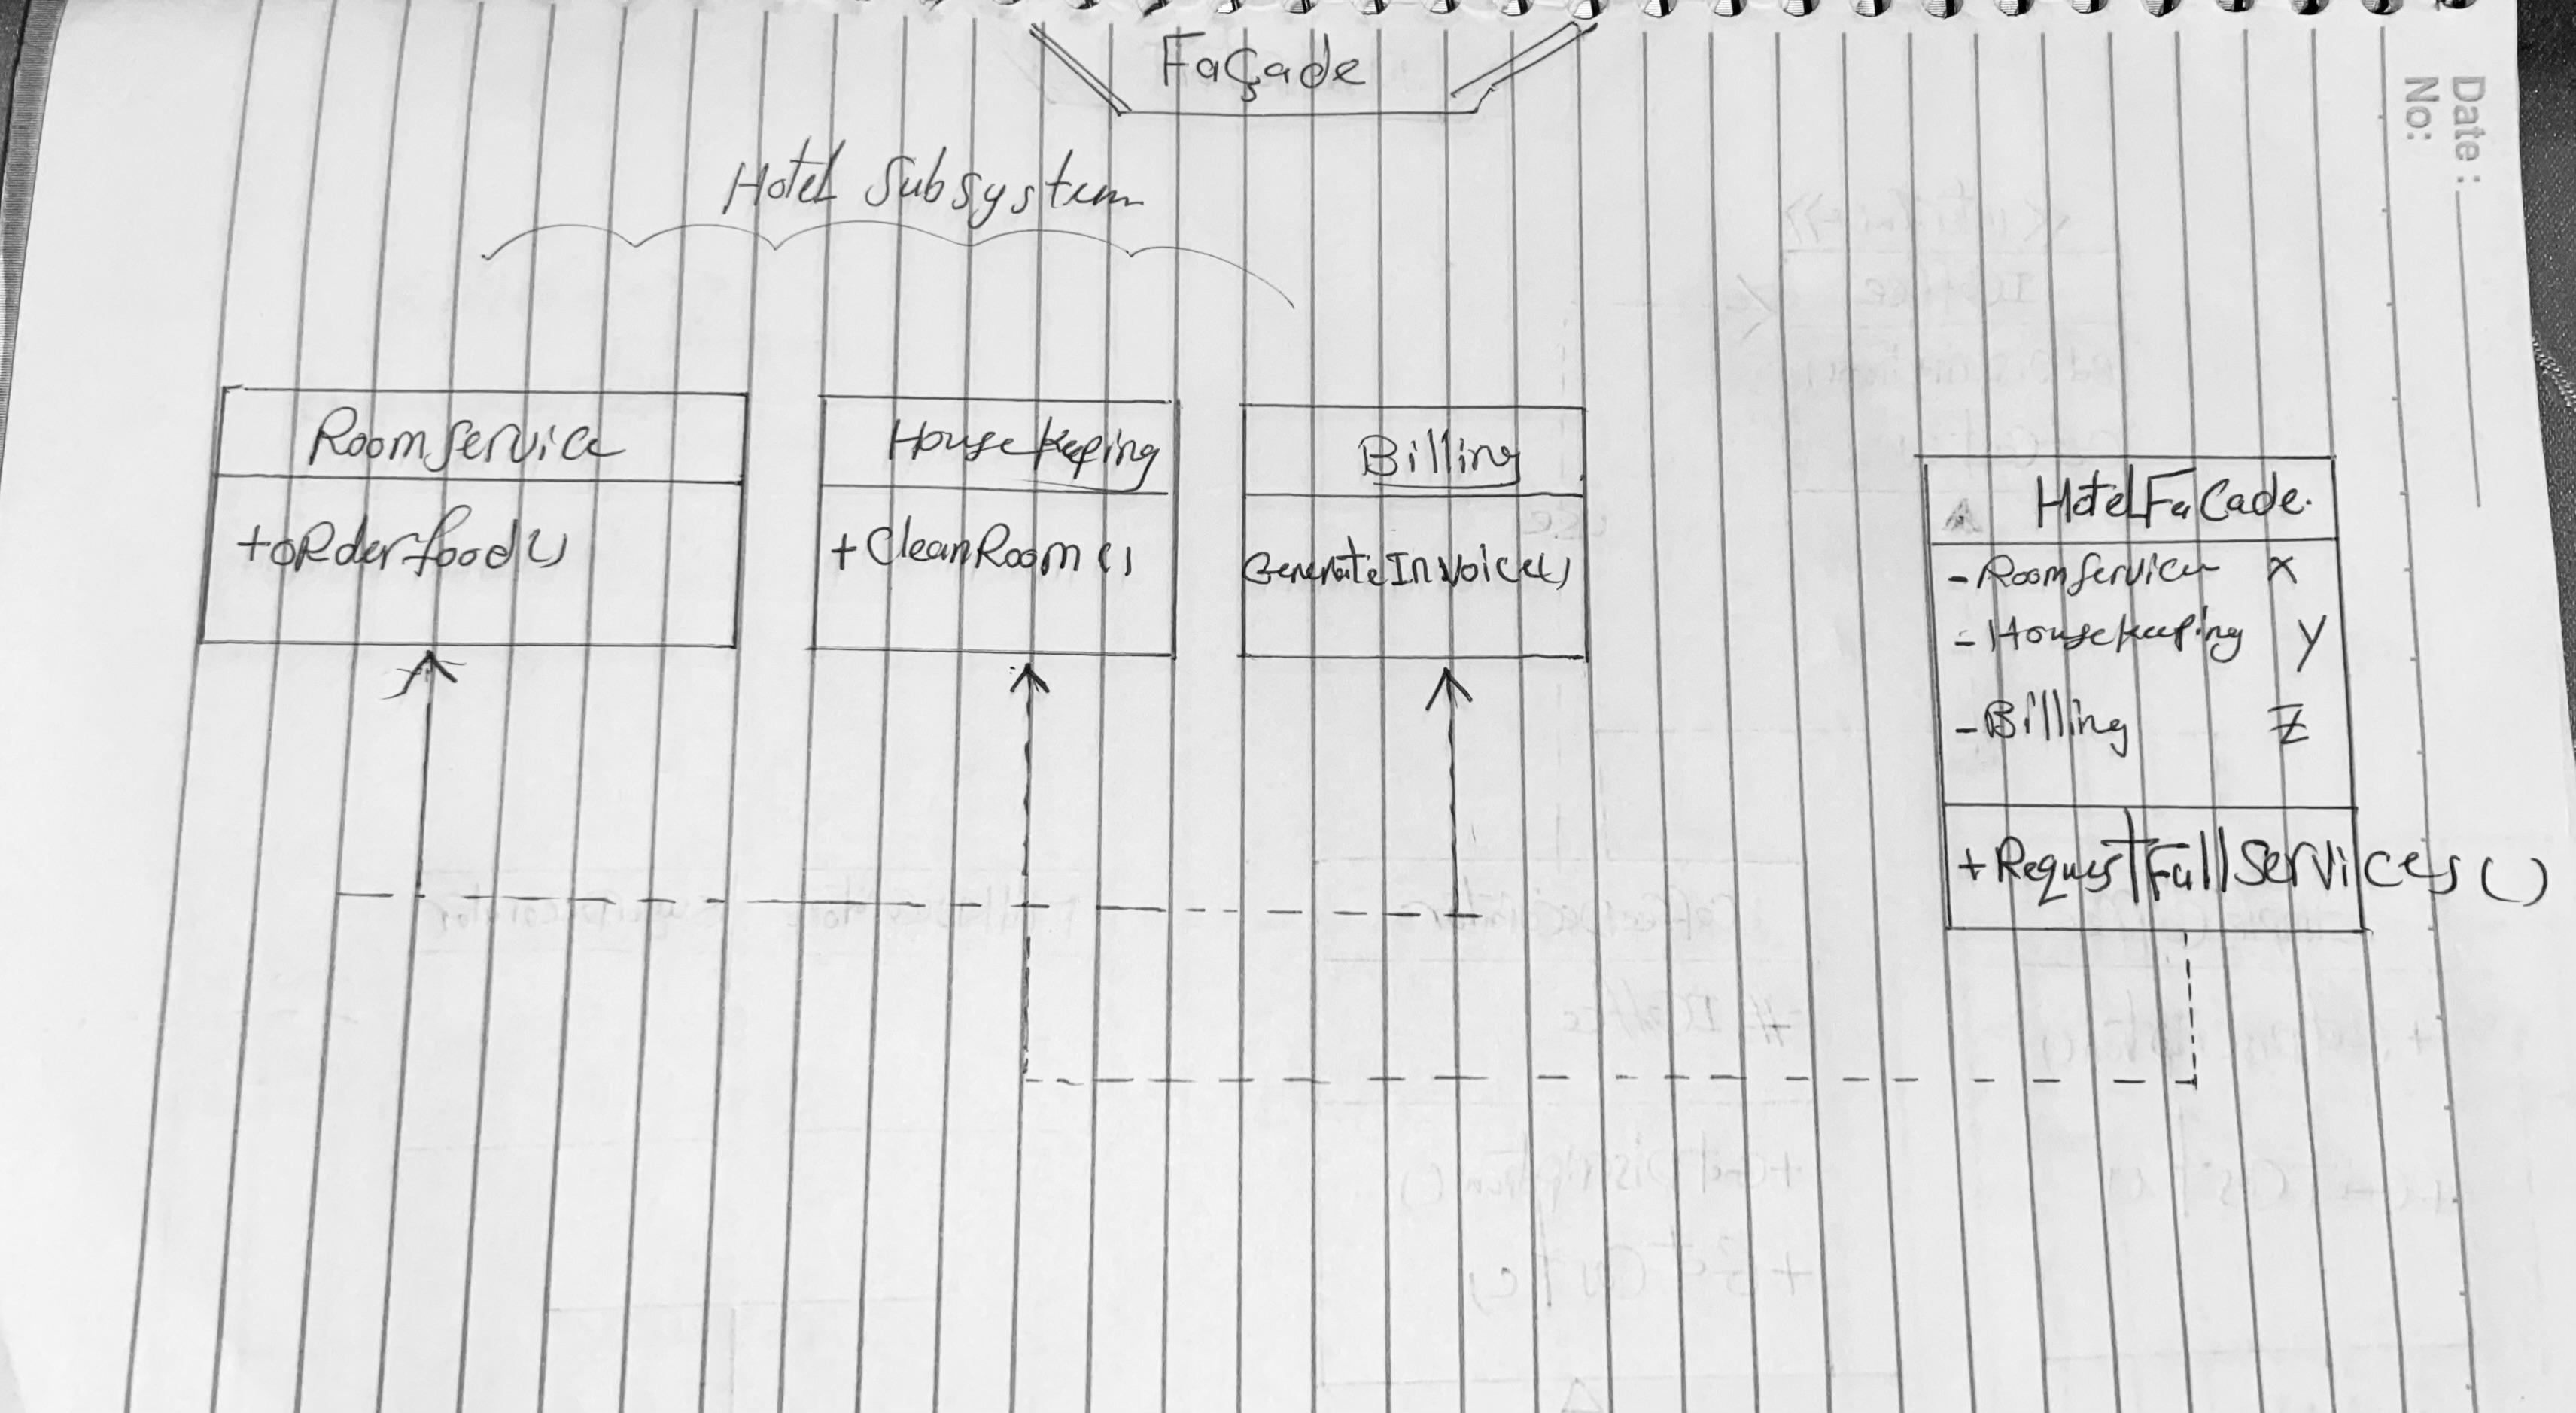 Façade
Date :
No:
Hotel Subsystem
Roomservice
+oRderfood()
Housekeeping
+CleanRoom()
Billing
GenerateInvoice()
HotelFaCade.
-Roomservice x
-Housekeeping y
-Billing z
+RequestFullServices()